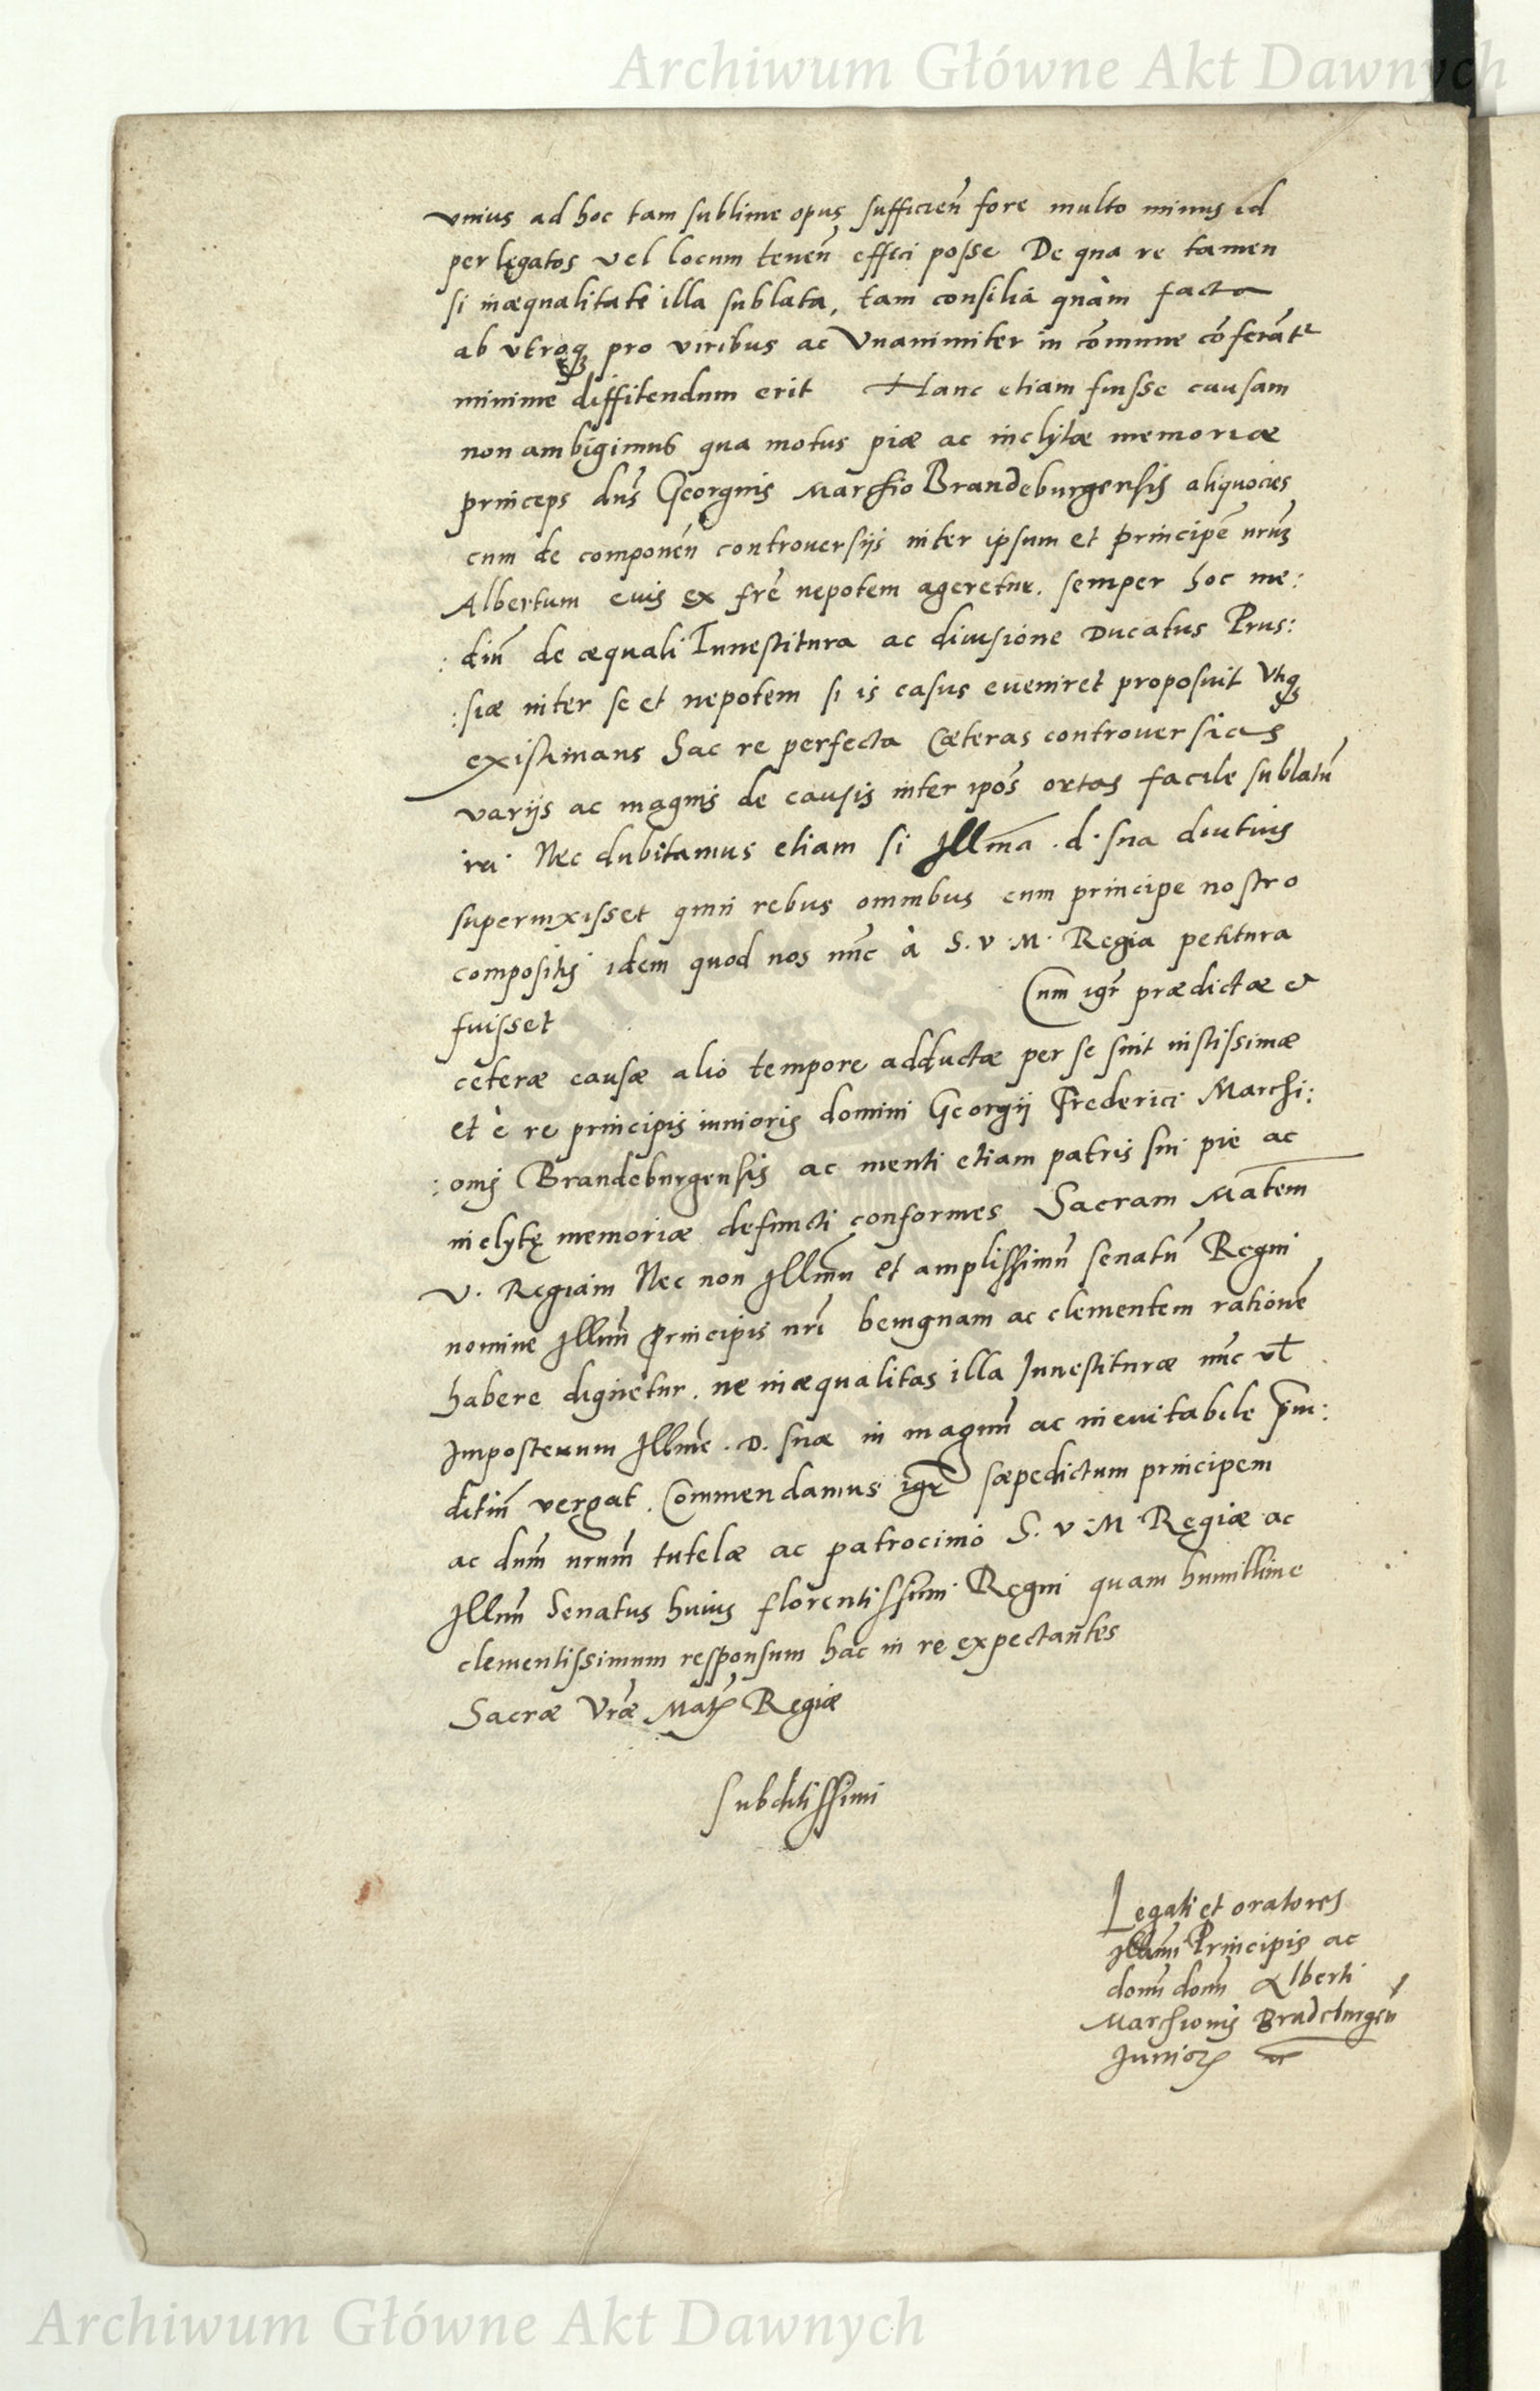 Archiwum Główne Akt Dawnych
vnius ad hoc tam sublime opus sufficien̄ fore multo minus id
per legatos vel locum tenen̄ effici posse De qua re tamen
si inæqualitate illa sublata, tam consilia quàm facta
ab vtroq; pro viribus ac Vnanimiter in cōmune cōferātr
minime diffitendum erit Hanc etiam fuisse causam
non ambigimus qua motus piæ ac inclytæ memoriæ
princeps dn̄s Georgius Marchio Brandeburgensis aliquocies
cum de componen̄ controuersijs inter ipsum et principē nr̄m
Albertum eius ex frē nepotem ageretur. semper hoc me:
: diū de æquali Inuestitura ac diuisione Ducatus Prus:
: siæ inter se et nepotem si is casus eueniret proposuit Vtiq;
existimans hac re perfecta Cæteras controuersias
varijs ac magnis de causis inter ipōs ortas facile sublatū
iri. Nec dubitamus etiam si Illma. d. sua diutius
superuixisset quin rebus omnibus cum principe nostro
compositis idem quod nos nūc à S. V. M. Regia petitura
fuisset Cum igr̄ prædictæ et
ceteræ causæ alio tempore adductæ per se sint iustissimæ
et è re principis iunioris domini Georgij Frederici Marchi:
: onis Brandeburgensis ac menti etiam patris sui pie ac
inclytę memoriæ defuncti conformes Sacram Matem
V. Regiam Nec non Illmū et amplissimū senatū Regni
nomine Illmi principis nr̄i benignam ac clementem rationē
habere dignetur. ne inæqualitas illa Inuestituræ nūc vl̄
Imposterum Illmē. D. suæ in magnū ac ineuitabile p̄iu:
ditiū vergat. Commendamus igr̄ sæpedictum principem
ac dn̄m nr̄um tutelæ ac patrocinio S. V. M. Regiæ ac
Illmi Senatus huius florentissimi Regni quam humillime
clementissimum responsum hac in re expectantes
Sacræ Vræ Matis Regiæ
Subditissimi
Legati et oratores
Illmi Principis ac
domī domī Alberti
Marchionis Brādeburgēn
Junioris
Archiwum Główne Akt Dawnych